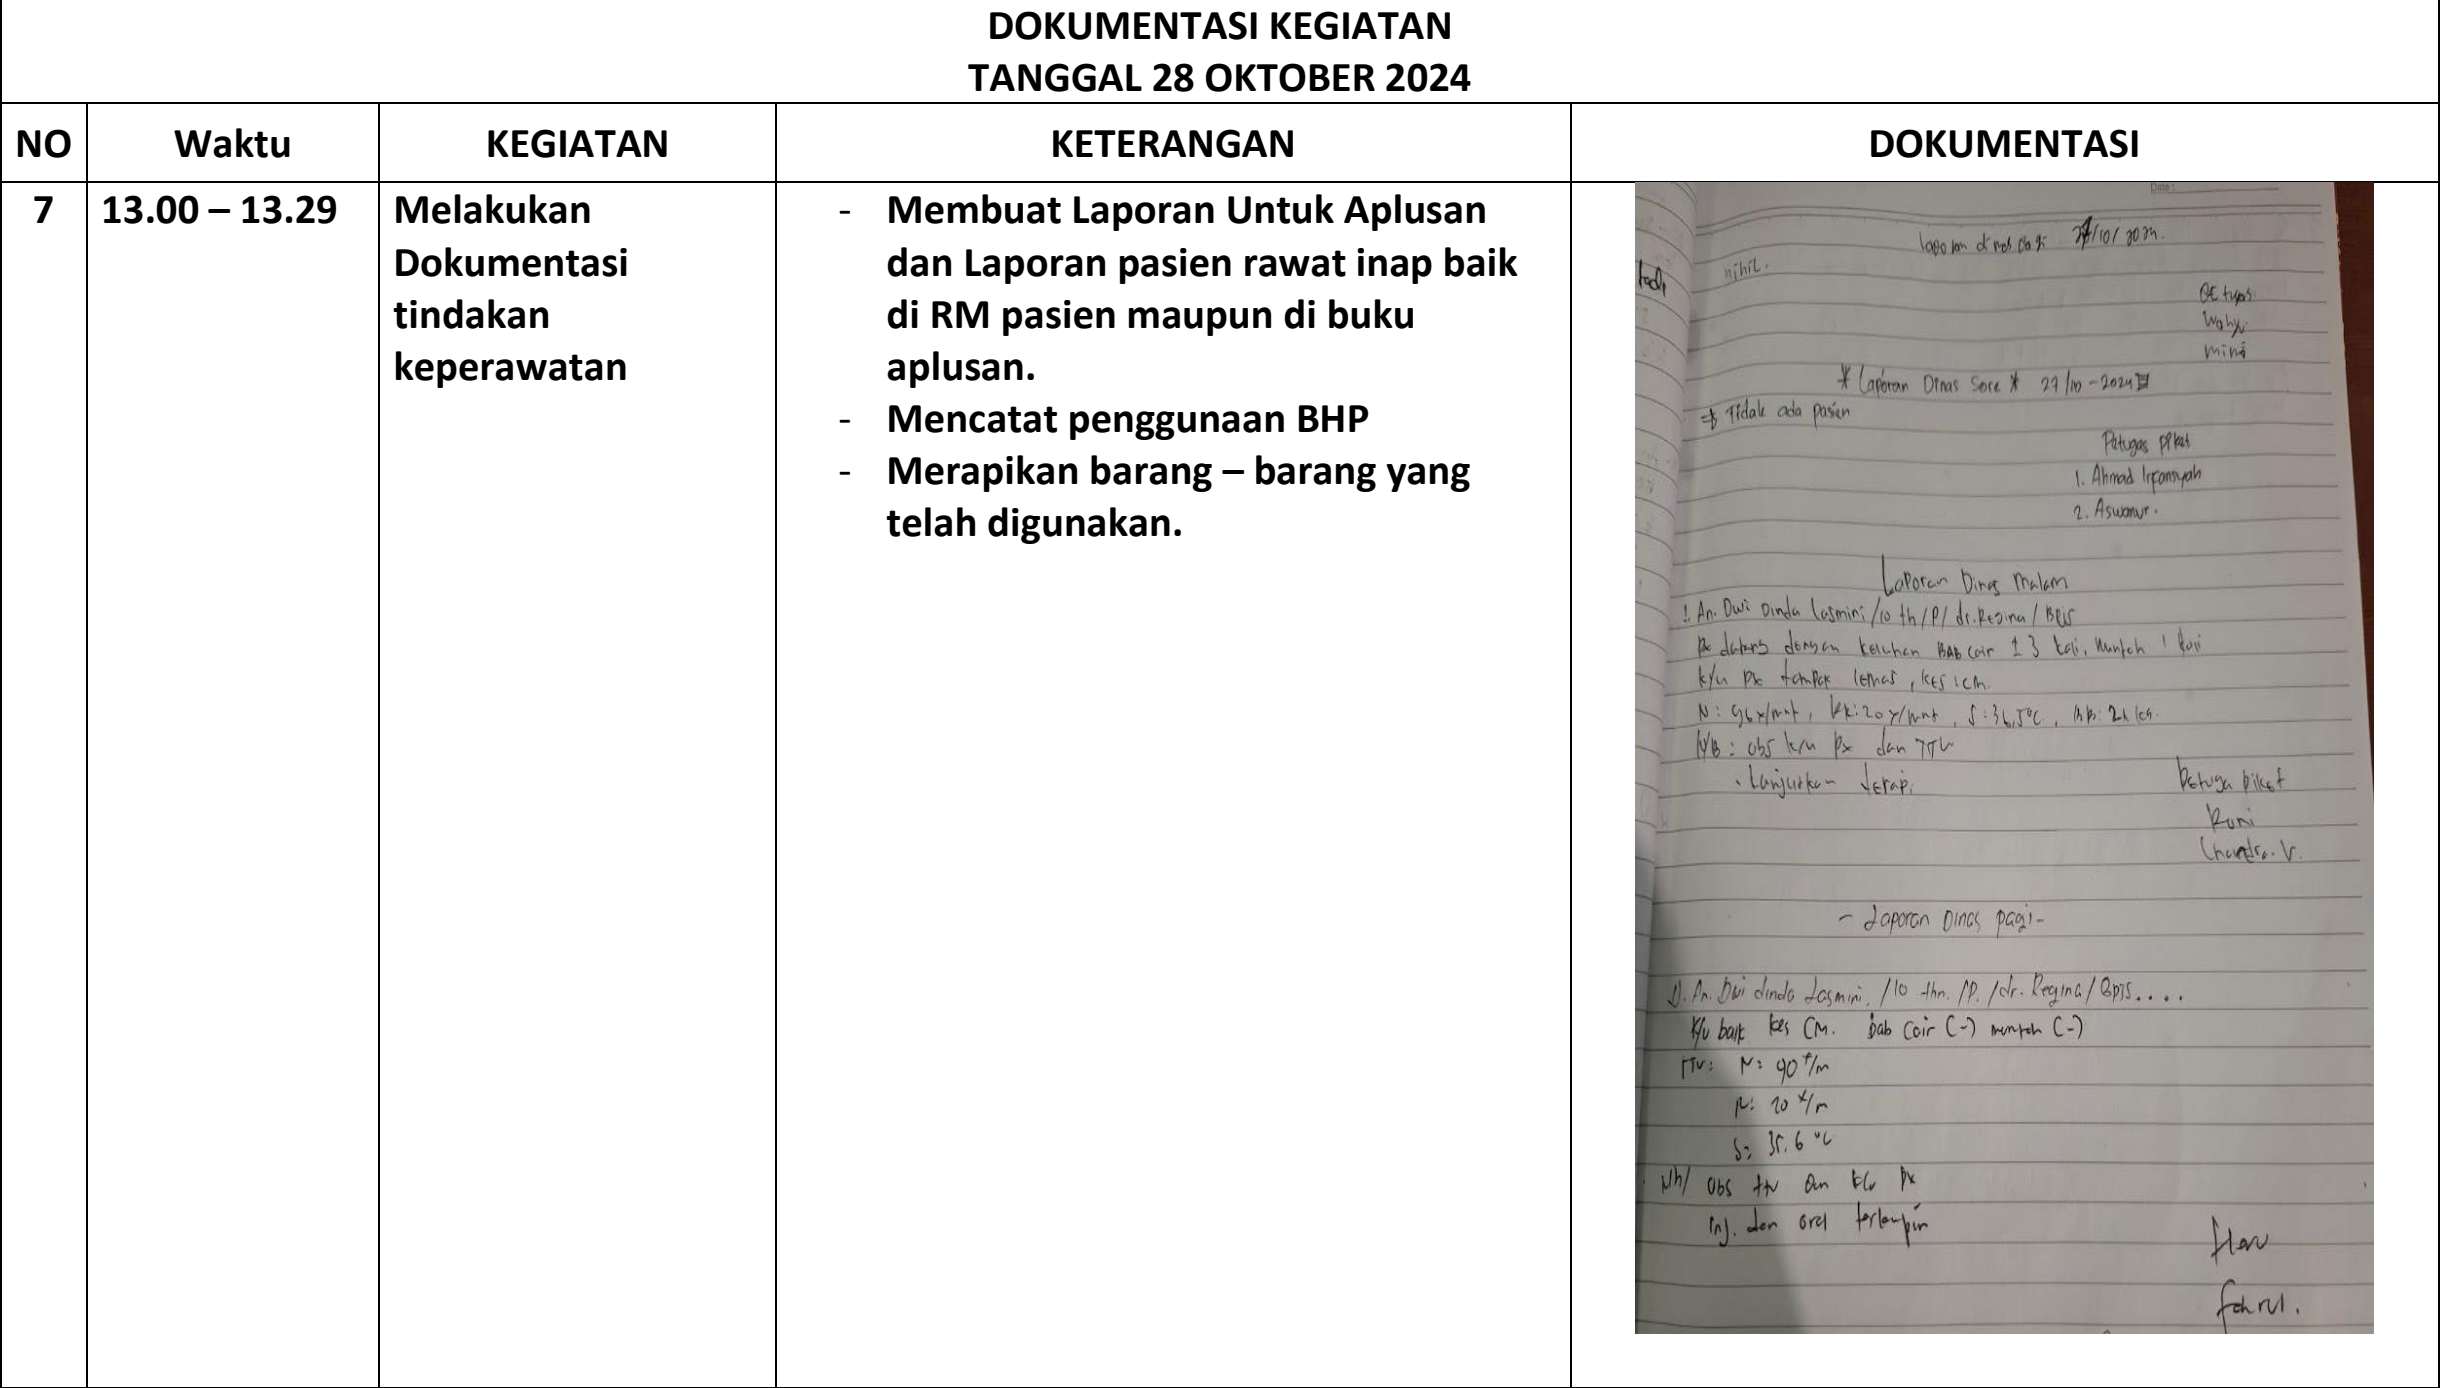 DOKUMENTASI KEGIATAN
TANGGAL 28 OKTOBER 2024
NO
Waktu
KEGIATAN
KETERANGAN
DOKUMENTASI
7
13.00 – 13.29
Melakukan
Dokumentasi
tindakan
keperawatan
- Membuat Laporan Untuk Aplusan
dan Laporan pasien rawat inap baik
di RM pasien maupun di buku
aplusan.
- Mencatat penggunaan BHP
- Merapikan barang – barang yang
telah digunakan.
Date:
/10/2024.
nihil.
Wahyu
* Laporan Dinas Sore * 27/10-2024
Tidak ada pasien
Petugas piket
1. Ahmad Irfansyah
2. Aswanur.
Laporan Dinas Malam
1. An. Dwi Dinda Lasmini /10 th/P/ dr.Regina/ BPJS
Px datang dengan keluhan BAB cair ± 3 kali, Muntah 1 kali
k/u px tampak lemas, kes : cm.
N: 96x/mnt, RR:20x/mnt, S:36,5°C, BB: kg.
N/B : obs k/u px dan TTV
Lanjutkan terapi
Petuga piket
Chandra. V.
- Laporan Dinas pagi -
1). An. Dwi dinda Lasmini, /10 thn. /P. /dr. Regina/ BPJS....
K/u baik kes CM. bab cair (-) muntah (-)
TTV: N: 90x/m
R: 20x/m
S: 35.6 °C
obs ttv dan k/u px
inj. dan oral
fahrul.